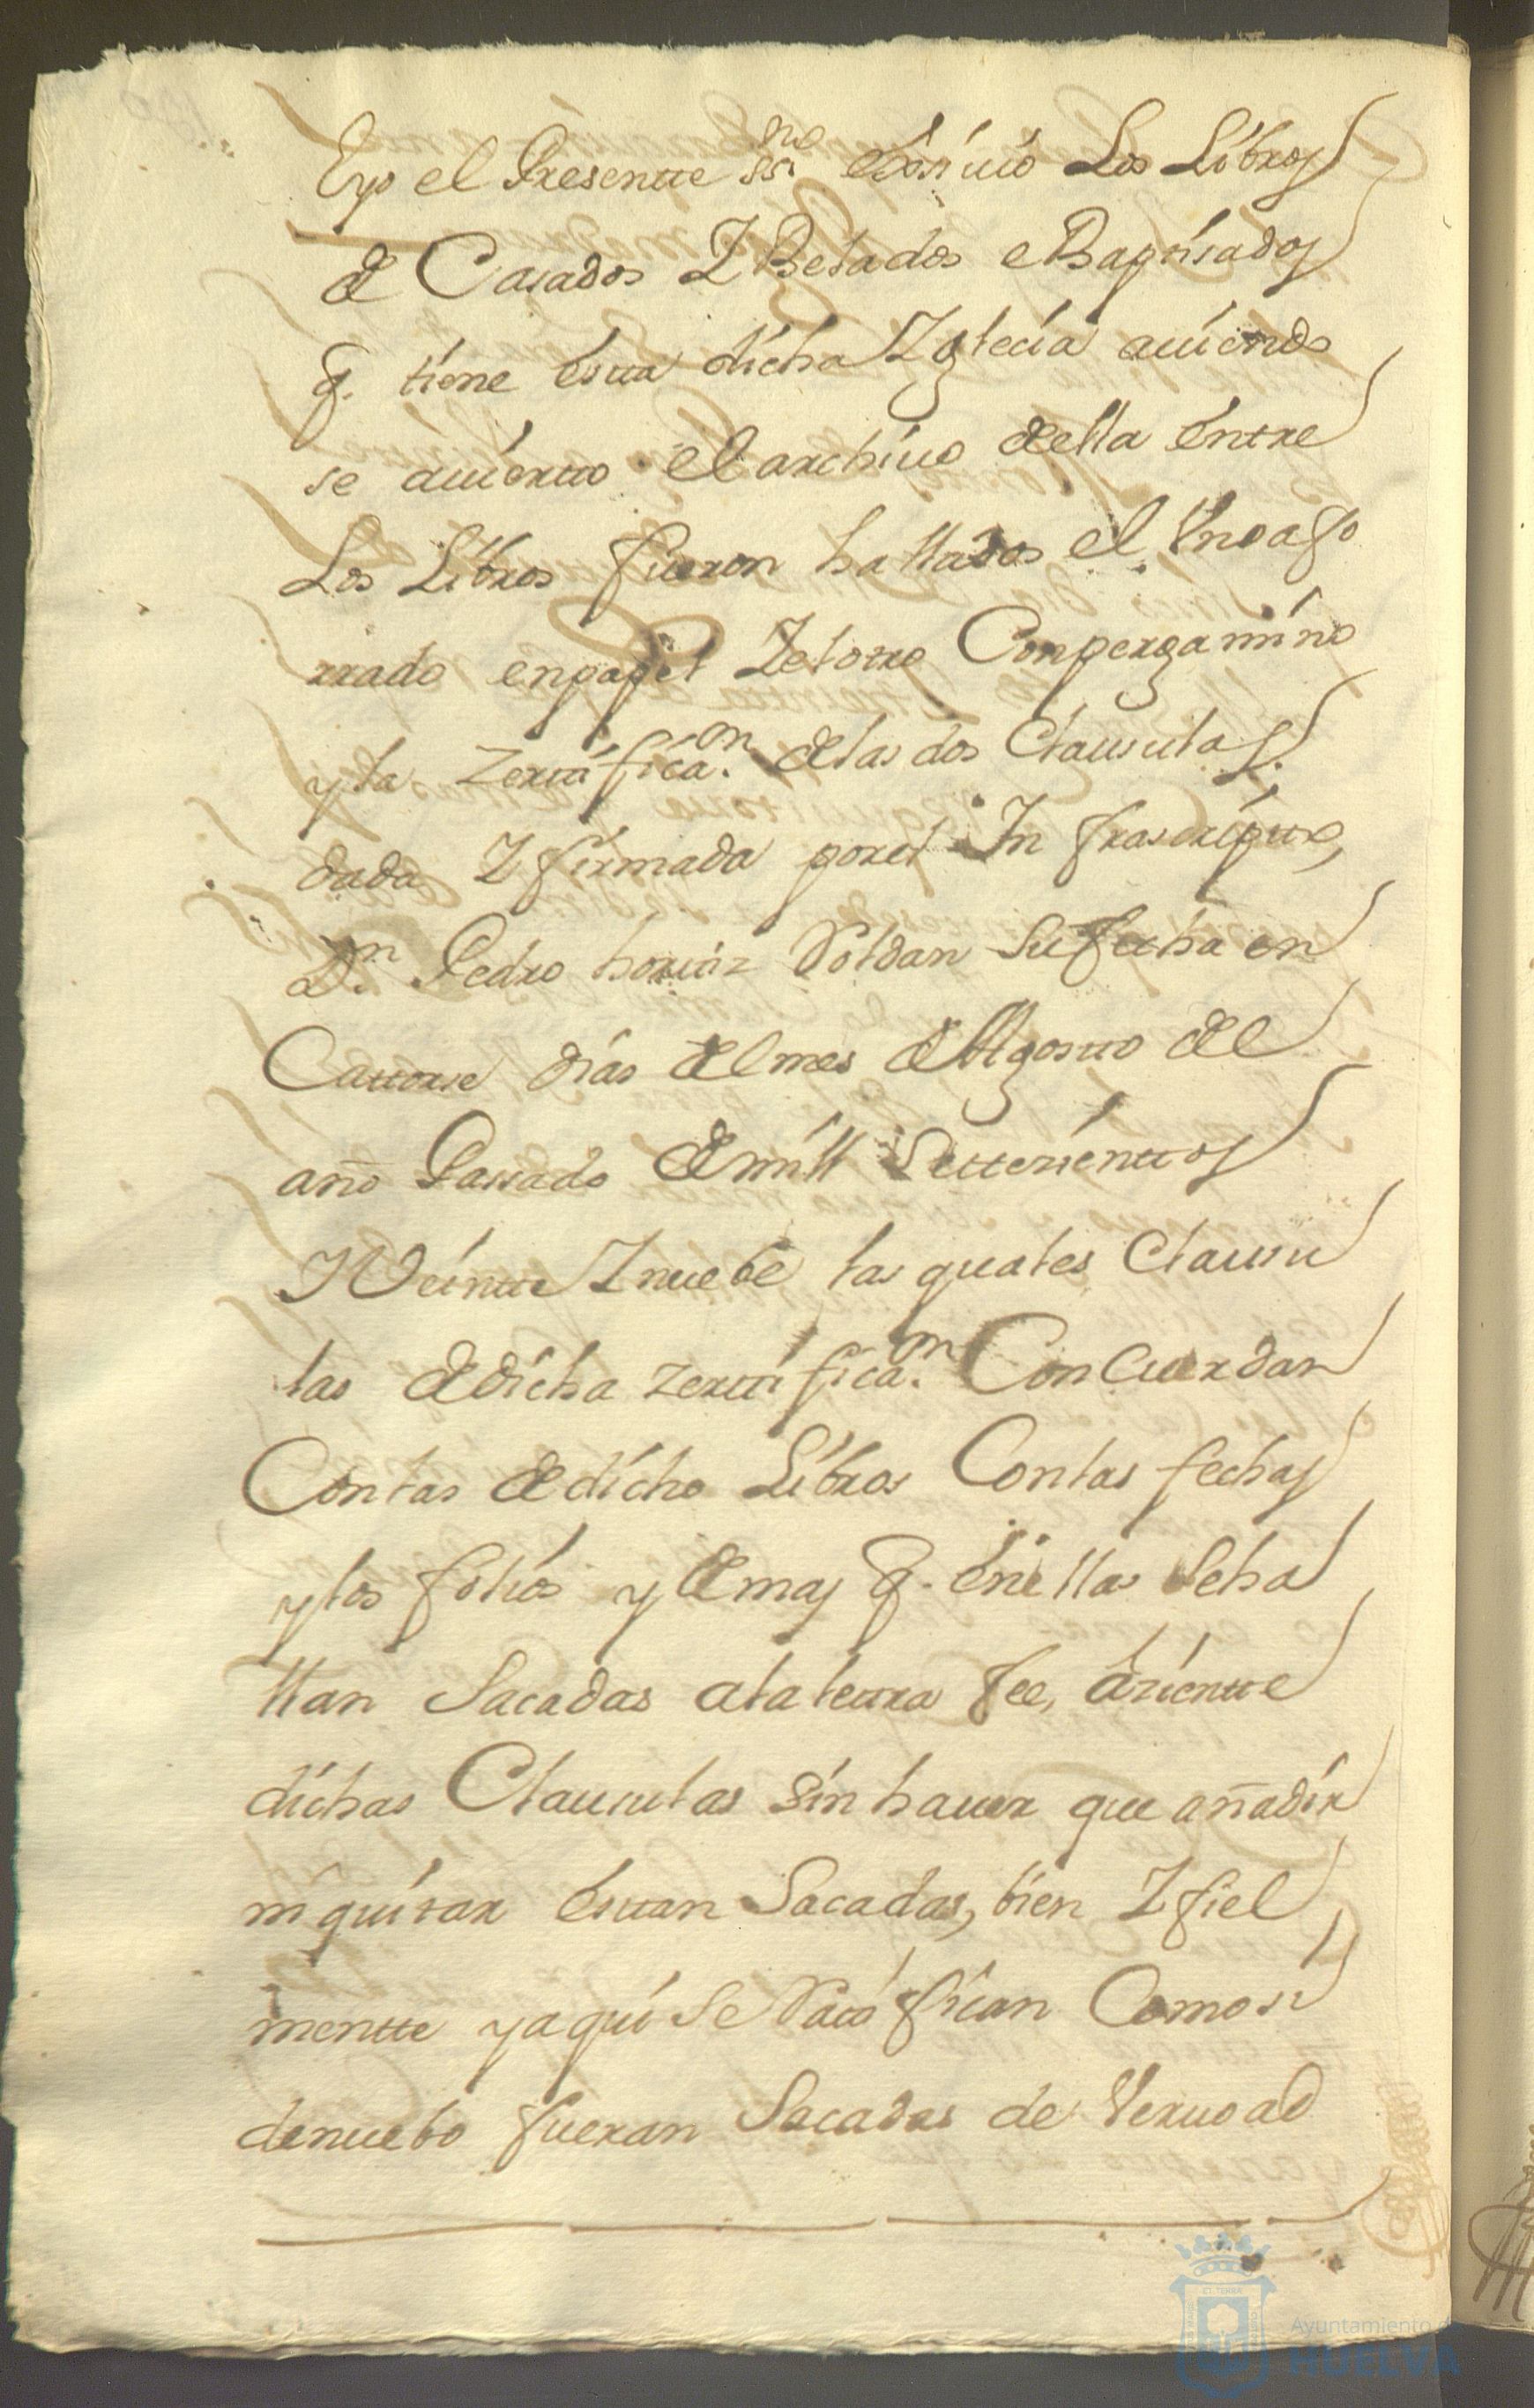 Eyo el Presentte ssno exsiuio Los Libros
de Casados I Belados e Baptisados
q. tiene estta dicha Iglecia auiendo
se auiertto el archiuo della entre
Los Libros fueron hallados el Vno afo
rrado enpapel I elotro Conpergamino
yla Zerttificaon. delas dos Clausulas
dada I firmada porel Infrascriptto,
Dn. Pedro horttiz Roldan su fecha en
Cattorse dias del mes de Agostto del
año Passado de mill Settezienttos
I Veintte I nuebe las quales Clausu
las de dicha zerttificaon. Concuerdan
Conlas de dicho Libros Conlas fechas
ylos folios y demas q. enellas Seha
llan Sacadas alaletra fee,
dichas Clausulas sin hauer que añadir
ni quitar esttan Sacadas, bien I fiel
mentte yaqui se Ratifican Como si
denuebo fueran Sacadas de Verdad
Ayuntamiento
HUELVA